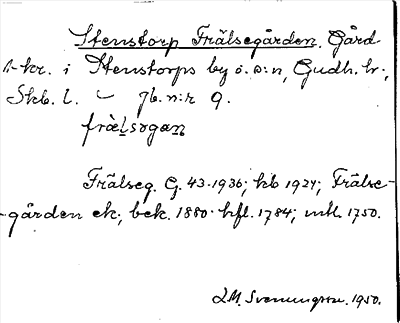 Stenstorp Frälsegården. Gård
1 kr. i Stenstorps by o. s:n, Gudh. hr.,
Skb. l. — jb. n:r 9.
frälsogan
Frälseg. G. 43. 1936; kb 1924; Frälse-
-gården ek., bek. 1880. hfl. 1784; mtl. 1750.
S. M. Svenungsson. 1950.